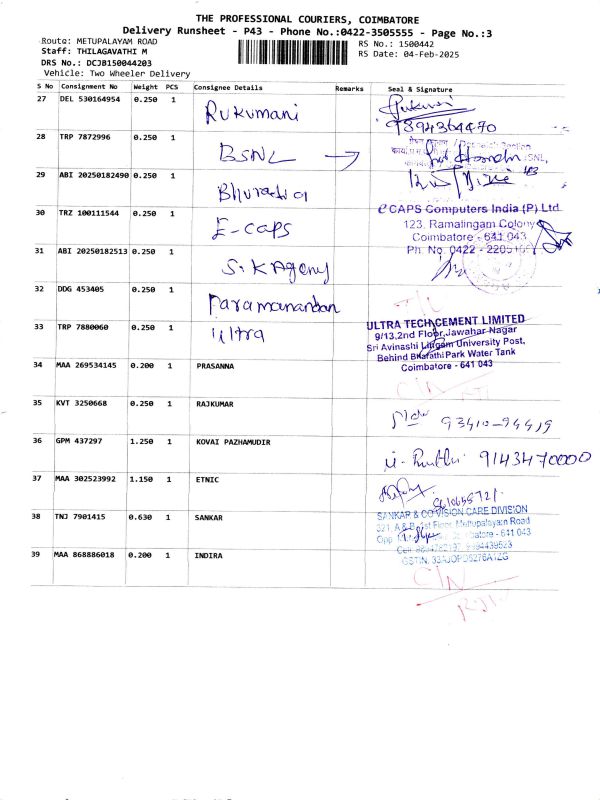 THE PROFESSIONAL COURIERS, COIMBATORE
Delivery Runsheet - P43 - Phone No.:0422-3505555 - Page No.:3
Route: METUPALAYAM ROAD
RS No.: 1500442
Staff: THILAGAVATHI M
RS Date: 04-Feb-2025
DRS No.: DCJB150044203
Vehicle: Two Wheeler Delivery
S No Consignment No Weight PCS Consignee Details Remarks Seal & Signature
27 DEL 530164954 0.250 1 Rukumani
9894364470
28 TRP 7872996 0.250 1 BSNL →
29 ABI 20250182490 0.250 1
30 TRZ 100111544 0.250 1 E-caps
eCAPS Computers India (P) Ltd
123, Ramalingam Colony
Coimbatore - 641 043
Ph. No. 0422 -
31 ABI 20250182513 0.250 1 S.K Agency
32 DDG 453405 0.250 1 Paramanandan
33 TRP 7880060 0.250 1 Ultra
ULTRA TECH CEMENT LIMITED
9/13,2nd Floor,Jawahar Nagar
Sri Avinashi Lingam University Post,
Behind Bharathi Park Water Tank
Coimbatore - 641 043
34 MAA 269534145 0.200 1 PRASANNA
35 KVT 3250668 0.250 1 RAJKUMAR
93410-94419
36 GPM 437297 1.250 1 KOVAI PAZHAMUDIR
9143470000
37 MAA 302523992 1.150 1 ETNIC
38 TNJ 7901415 0.630 1 SANKAR
SANKAR & CO VISION CARE DIVISION
321, A & B, 1st Floor, Mettupalayam Road
Coimbatore - 641 043
39 MAA 868886018 0.200 1 INDIRA